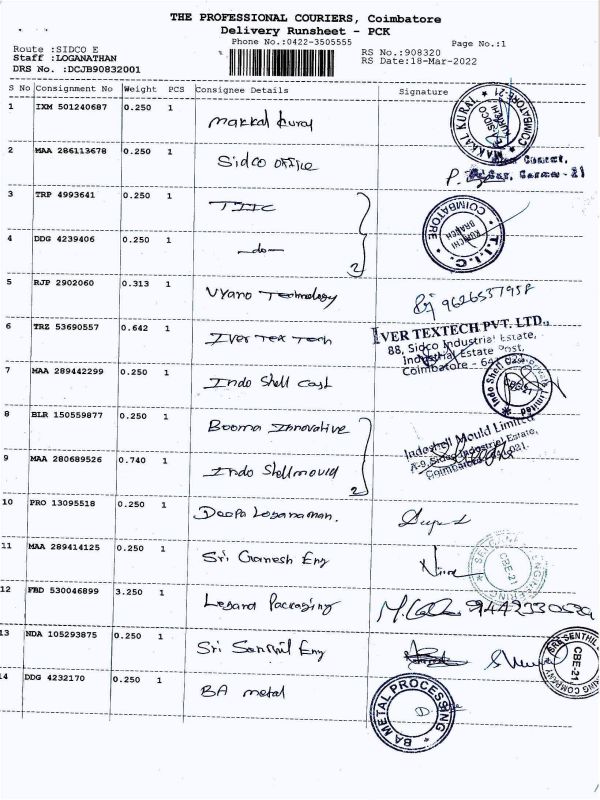 THE PROFESSIONAL COURIERS, Coimbatore
Delivery Runsheet - PCK
Phone No.:0422-3505555
Page No.:1
Route :SIDCO E
Staff :LOGANATHAN
DRS No. :DCJB90832001
RS No.:908320
RS Date:18-Mar-2022
S No Consignment No Weight PCS Consignee Details Signature
1 IXM 501240687 0.250 1 Makkal Kural
MAKKAL KURAL COIMBATORE-21
2 MAA 286113678 0.250 1 Sidco office
3 TRP 4993641 0.250 1 TIIC
T.I.I.C. KURICHI BRANCH COIMBATORE
4 DDG 4239406 0.250 1 -do- 2
5 RJP 2902060 0.313 1 Vyano Technology
6 TRZ 53690557 0.642 1 Iver Tex Tech
IVER TEXTECH PVT. LTD.,
88, Sidco Industrial Estate,
Industrial Estate Post,
Coimbatore - 641 021
7 MAA 289442299 0.250 1 Indo Shell Cast
8 BLR 150559877 0.250 1 Booma Innovative
Indoshell Mould Limited
A-9, Sidco Industrial Estate,
Coimbatore - 641 021.
9 MAA 280689526 0.740 1 Indo Shell mould 2
10 PRO 13095518 0.250 1 Deepa Loganaman.
11 MAA 289414125 0.250 1 Sri Ganesh Eng
CBE-21 ENGINEERING
12 FBD 530046899 3.250 1 Packaging
13 NDA 105293875 0.250 1 Sri Senthil Eng
SRI SENTHIL CBE-21
14 DDG 4232170 0.250 1 BA metal
BA METAL PROCESSING